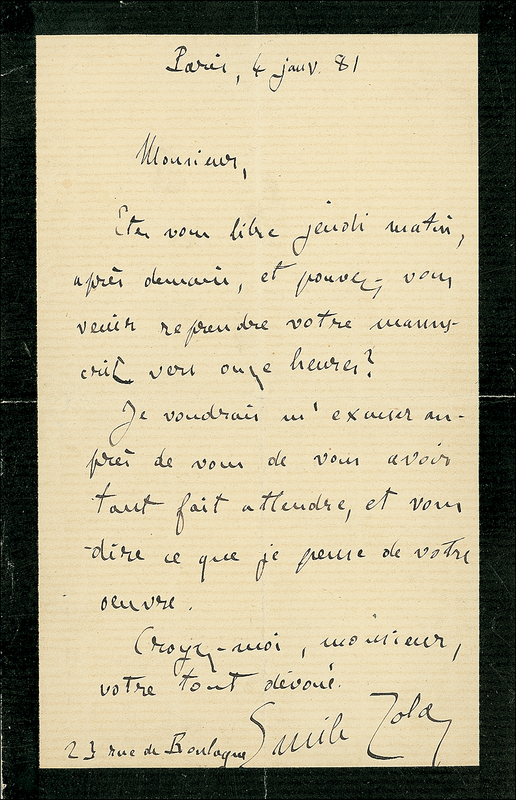 Paris, 4 janv. 81
Monsieur,
Etes vous libre jeudi matin,
après demain, et pouvez-vous
venir reprendre votre manus-
crit vers onze heures?
Je voudrais m'excuser au-
près de vous de vous avoir
tant fait attendre, et vous
dire ce que je pense de votre
oeuvre.
Croyez-moi, monsieur,
votre tout dévoué.
Emile Zola
23 rue de Boulogne